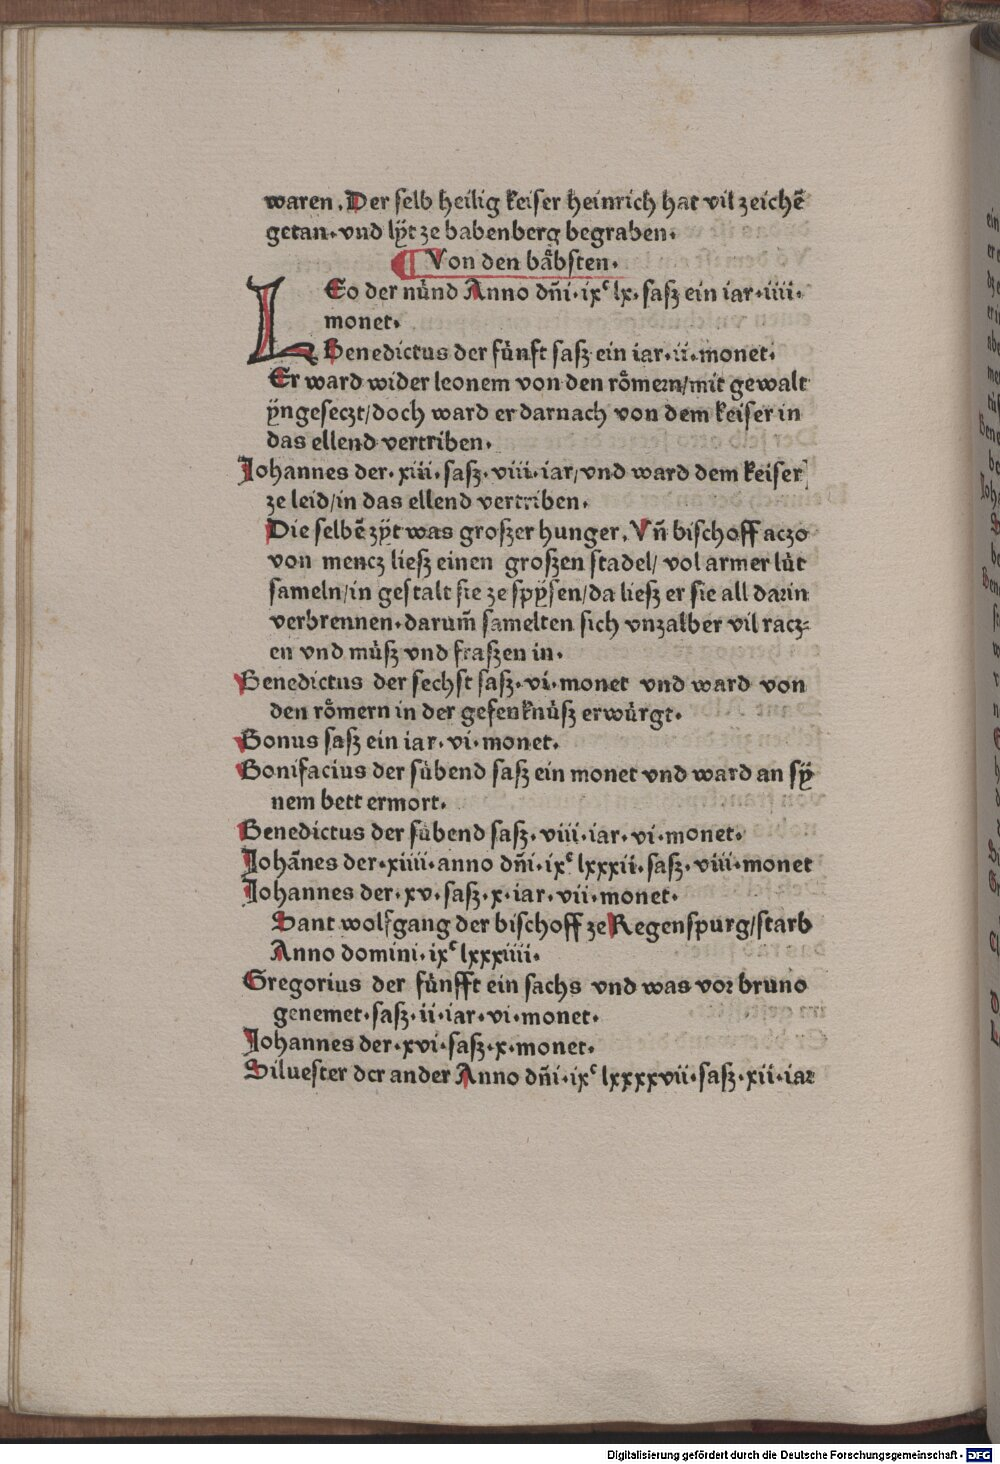 waren. Der selb heilig keiser heinrich hat vil zeichē
getan. vnd lÿt ze babenberg begraben.
Von den bäbsten.
LEo der nünd Anno dn̄i. ixᶜ lx. sasz ein iar. iiii.
monet.
Benedictus der fünft sasz ein iar. ii. monet.
Er ward wider leonem von den römern/mit gewalt
ÿngeseczt/doch ward er darnach von dem keiser in
das ellend vertriben.
Johannes der. xiii. sasz. viii. iar/vnd ward dem keiser
ze leid/in das ellend vertriben.
Die selbē zÿt was groszer hunger. Vn̄ bischoff aczo
von mencz liesz einen groszen stadel/ vol armer lüt
sameln/in gestalt sie ze spÿsen/da liesz er sie all darin
verbrennen. darum̄ samelten sich vnzalber vil racz⸗
en vnd müsz vnd fraszen in.
Benedictus der sechst sasz. vi. monet vnd ward von
den römern in der gefenknüsz erwürgt.
Bonus sasz ein iar. vi. monet.
Bonifacius der sübend sasz ein monet vnd ward an sÿ
nem bett ermort.
Benedictus der sübend sasz. viii. iar. vi. monet.
Johānes der. xiiii. anno dn̄i. ixᶜ lxxxii. sasz. viii. monet
Johannes der. xv. sasz. x. iar. vii. monet.
Sant wolfgang der bischoff ze Regenspurg/starb
Anno domini. ixᶜ lxxxiiii.
Gregorius der fünfft ein sachs vnd was vor bruno
genemet. sasz. ii. iar. vi. monet.
Johannes der. xvi. sasz. x. monet.
Siluester der ander Anno dn̄i. ixᶜ lxxxxvii. sasz. xii. iar
Digitalisierung gefördert durch die Deutsche Forschungsgemeinschaft - DFG